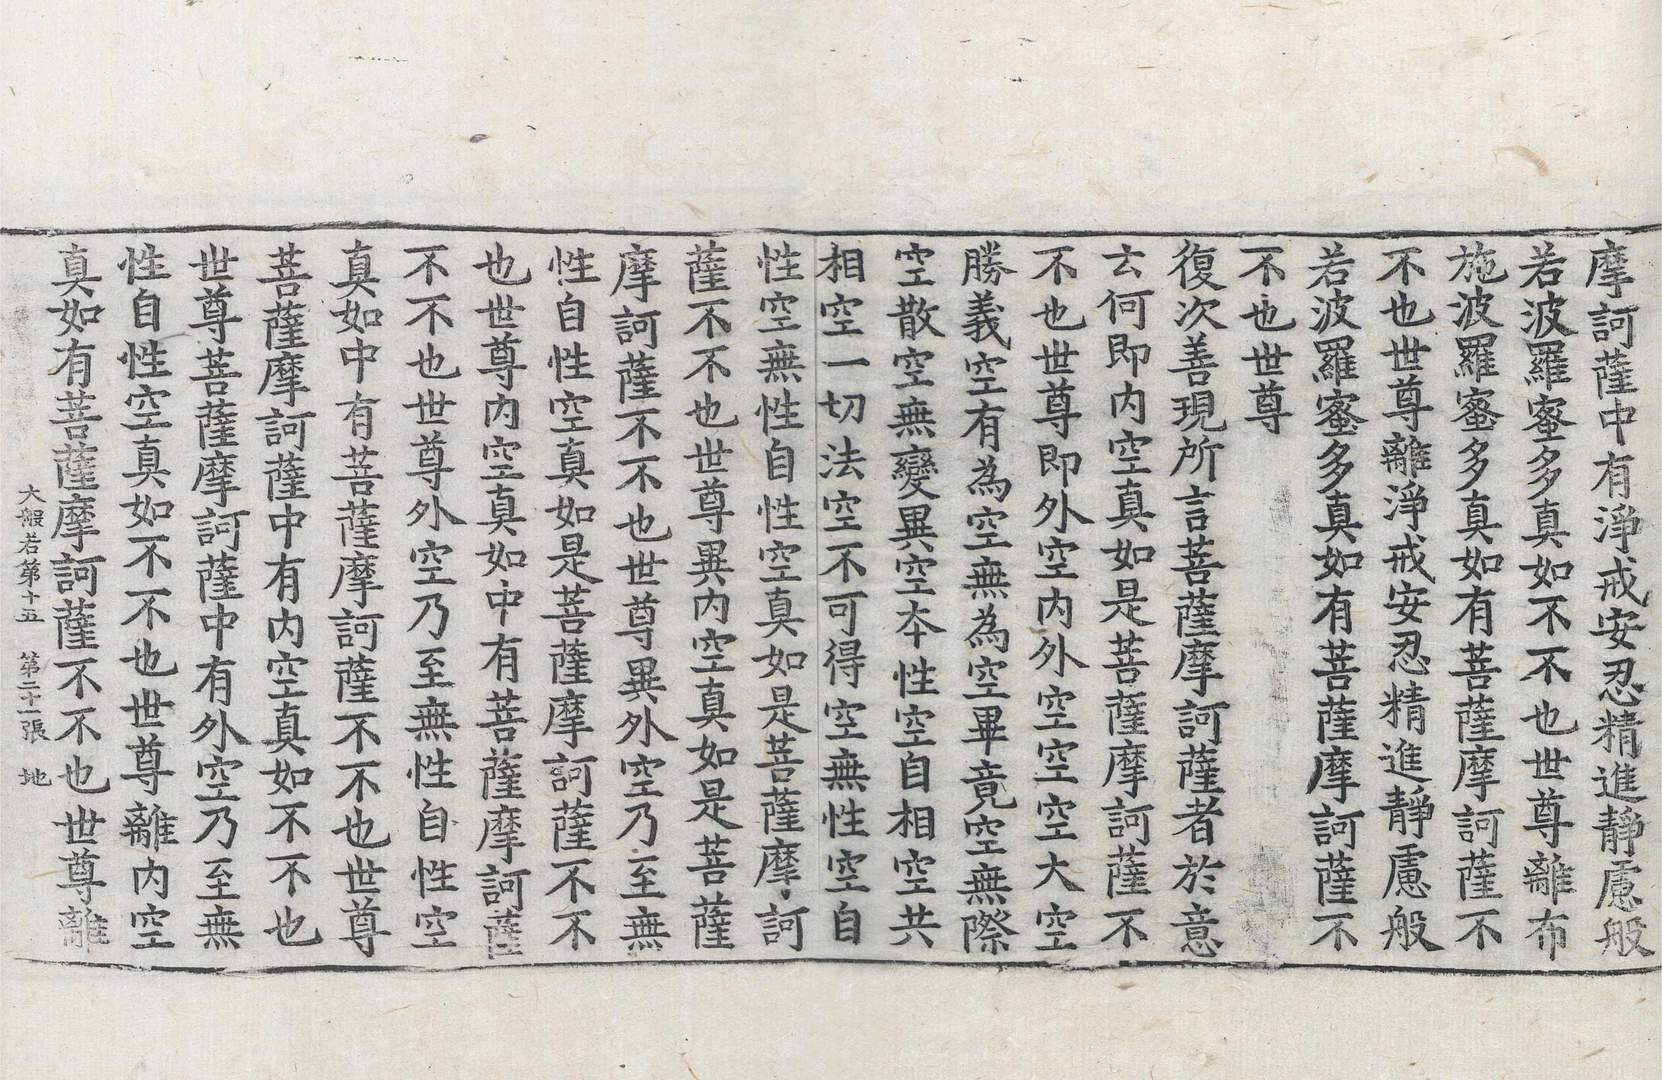 摩訶薩中有淨戒安忍精進靜慮般
若波羅蜜多真如不不也世尊離布
施波羅蜜多真如有菩薩摩訶薩不
不也世尊離淨戒安忍精進靜慮般
若波羅蜜多真如有菩薩摩訶薩不
不也世尊
復次善現所言菩薩摩訶薩者於意
云何即內空真如是菩薩摩訶薩不
不也世尊即外空內外空空空大空
勝義空有為空無為空畢竟空無際
空散空無變異空本性空自相空共
相空一切法空不可得空無性空自
性空無性自性空真如是菩薩摩訶
薩不不也世尊異內空真如是菩薩
摩訶薩不不也世尊異外空乃至無
性自性空真如是菩薩摩訶薩不不
也世尊內空真如中有菩薩摩訶薩
不不也世尊外空乃至無性自性空
真如中有菩薩摩訶薩不不也世尊
菩薩摩訶薩中有內空真如不不也
世尊菩薩摩訶薩中有外空乃至無
性自性空真如不不也世尊離內空
真如有菩薩摩訶薩不不也世尊離
大般若第十五 第二十一張 地